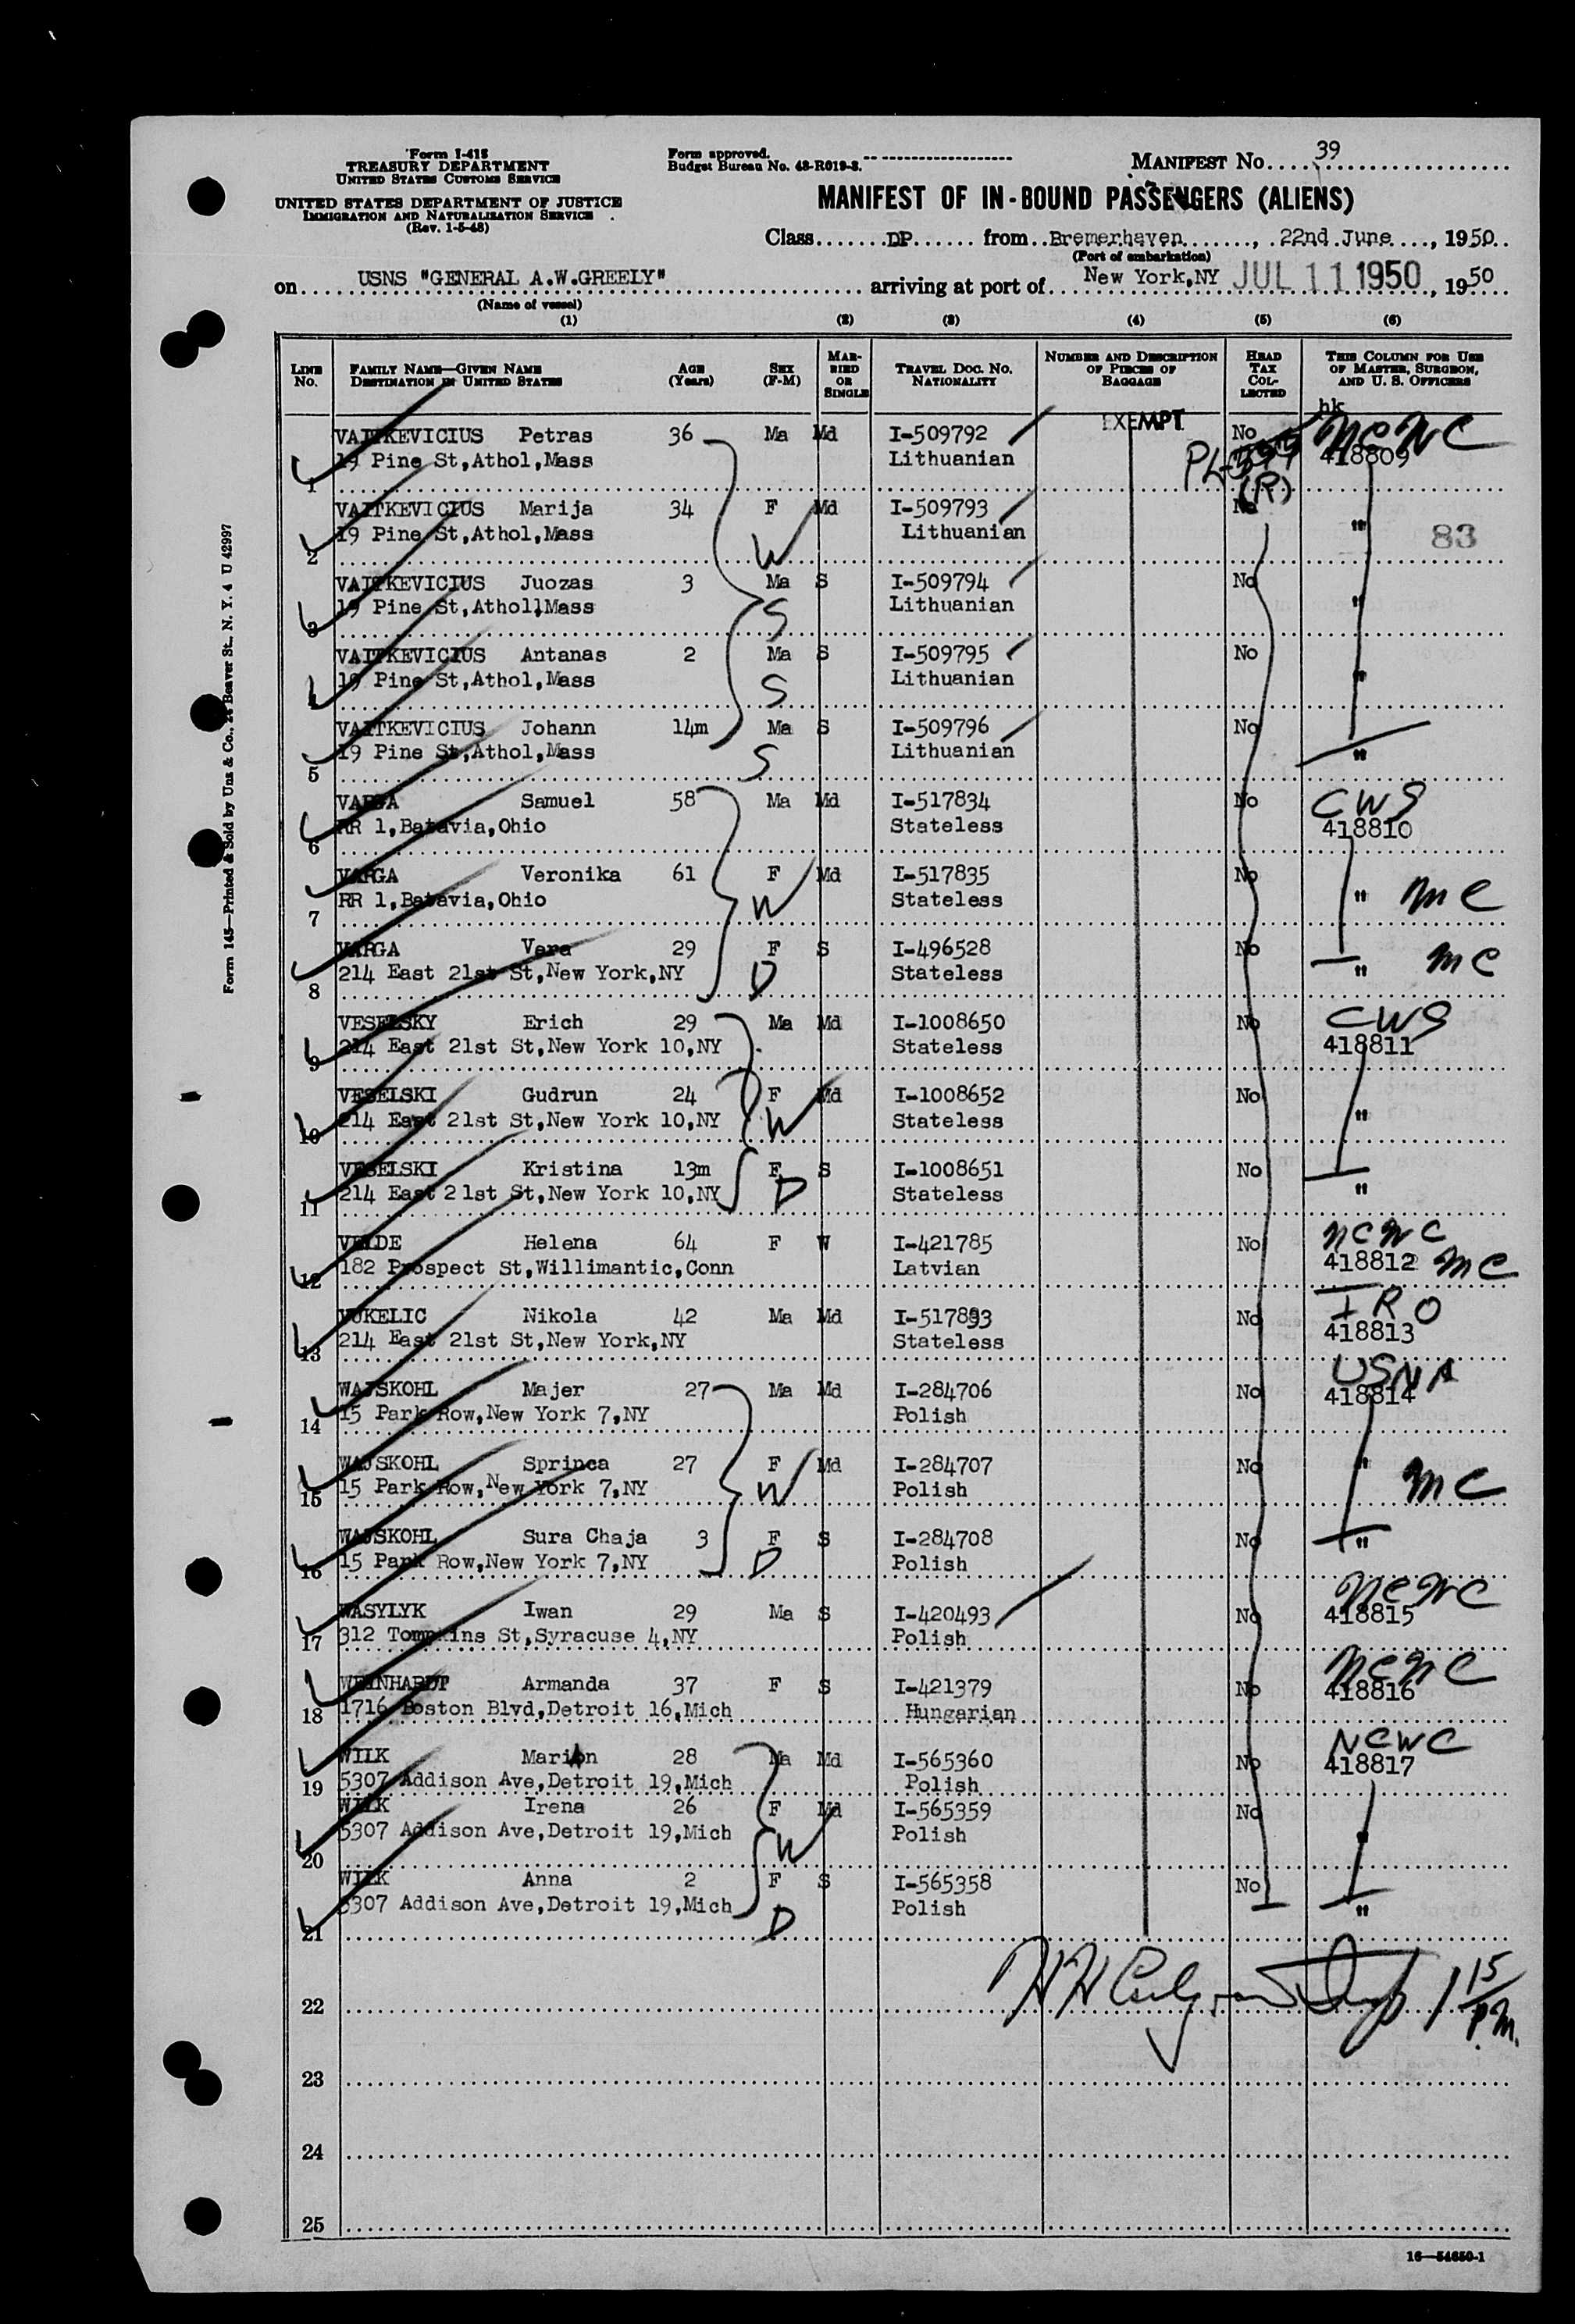 Form I-415
TREASURY DEPARTMENT
UNITED STATES CUSTOMS SERVICE
UNITED STATES DEPARTMENT OF JUSTICE
IMMIGRATION AND NATURALIZATION SERVICE
(Rev. 1-5-48)
Form approved.
Budget Bureau No. 43-R019-3.
MANIFEST No. 39
MANIFEST OF IN-BOUND PASSENGERS (ALIENS)
Class DP from Bremerhaven, 22nd June, 1950
(Port of embarkation)
on USNS "GENERAL A.W.GREELY" arriving at port of New York,NY JUL 11 1950, 1950
(Name of vessel)
(1) (2) (3) (4) (5) (6)
LINE No. FAMILY NAME—GIVEN NAME DESTINATION IN UNITED STATES AGE (Years) SEX (F-M) MARRIED OR SINGLE TRAVEL DOC. NO. NATIONALITY NUMBER AND DESCRIPTION OF PIECES OF BAGGAGE HEAD TAX COLLECTED THIS COLUMN FOR USE OF MASTER, SURGEON, AND U. S. OFFICERS
hk
EXEMPT
VAITKEVICIUS Petras 36 Ma Md I-509792 No NCWC
1 19 Pine St,Athol,Mass Lithuanian 418809
(R)
VAITKEVICIUS Marija 34 F Md I-509793 No "
2 19 Pine St,Athol,Mass W Lithuanian 83
VAITKEVICIUS Juozas 3 Ma S I-509794 No
3 19 Pine St,Athol,Mass S Lithuanian "
VAITKEVICIUS Antanas 2 Ma S I-509795 No
4 19 Pine St,Athol,Mass S Lithuanian "
VAITKEVICIUS Johann 14m Ma S I-509796 No
5 19 Pine St,Athol,Mass S Lithuanian "
VARGA Samuel 58 Ma Md I-517834 No CWS
6 RR 1,Batavia,Ohio Stateless 418810
VARGA Veronika 61 F Md I-517835 No
7 RR 1,Batavia,Ohio W Stateless " MC
VARGA Vera 29 F S I-496528 No
8 214 East 21st St,New York,NY D Stateless " MC
VESELSKY Erich 29 Ma Md I-1008650 No CWS
9 214 East 21st St,New York 10,NY Stateless 418811
VESELSKI Gudrun 24 F Md I-1008652 No
10 214 East 21st St,New York 10,NY W Stateless "
VESELSKI Kristina 13m F S I-1008651 No
11 214 East 21st St,New York 10,NY D Stateless "
Helena 64 F W I-421785 No NCWC
12 182 Prospect St,Willimantic,Conn Latvian 418812 MC
VUKELIC Nikola 42 Ma Md I-517893 No IRO
13 214 East 21st St,New York,NY Stateless 418813
WAJSKOHL Majer 27 Ma Md I-284706 No USNA
14 15 Park Row,New York 7,NY Polish 418814
WAJSKOHL Sprinca 27 F Md I-284707 No "
15 15 Park Row,New York 7,NY W Polish MC
WAJSKOHL Sura Chaja 3 F S I-284708 No
16 15 Park Row,New York 7,NY D Polish "
WASYLYK Iwan 29 Ma S I-420493 No NCWC
17 312 Tompkins St,Syracuse 4,NY Polish 418815
WEINHARDT Armanda 37 F S I-421379 No NCWC
18 1716 Boston Blvd,Detroit 16,Mich Hungarian 418816
WILK Marian 28 Ma Md I-565360 No NCWC
19 5307 Addison Ave,Detroit 19,Mich Polish 418817
WILK Irena 26 F Md I-565359 No
20 5307 Addison Ave,Detroit 19,Mich W Polish "
WILK Anna 2 F S I-565358 No
21 5307 Addison Ave,Detroit 19,Mich D Polish "
22 1 15 P.M.
23
24
25
16—54650-1
Form 145—Printed & Sold by Unz & Co., 24 Beaver St., N. Y. 4 U 42997